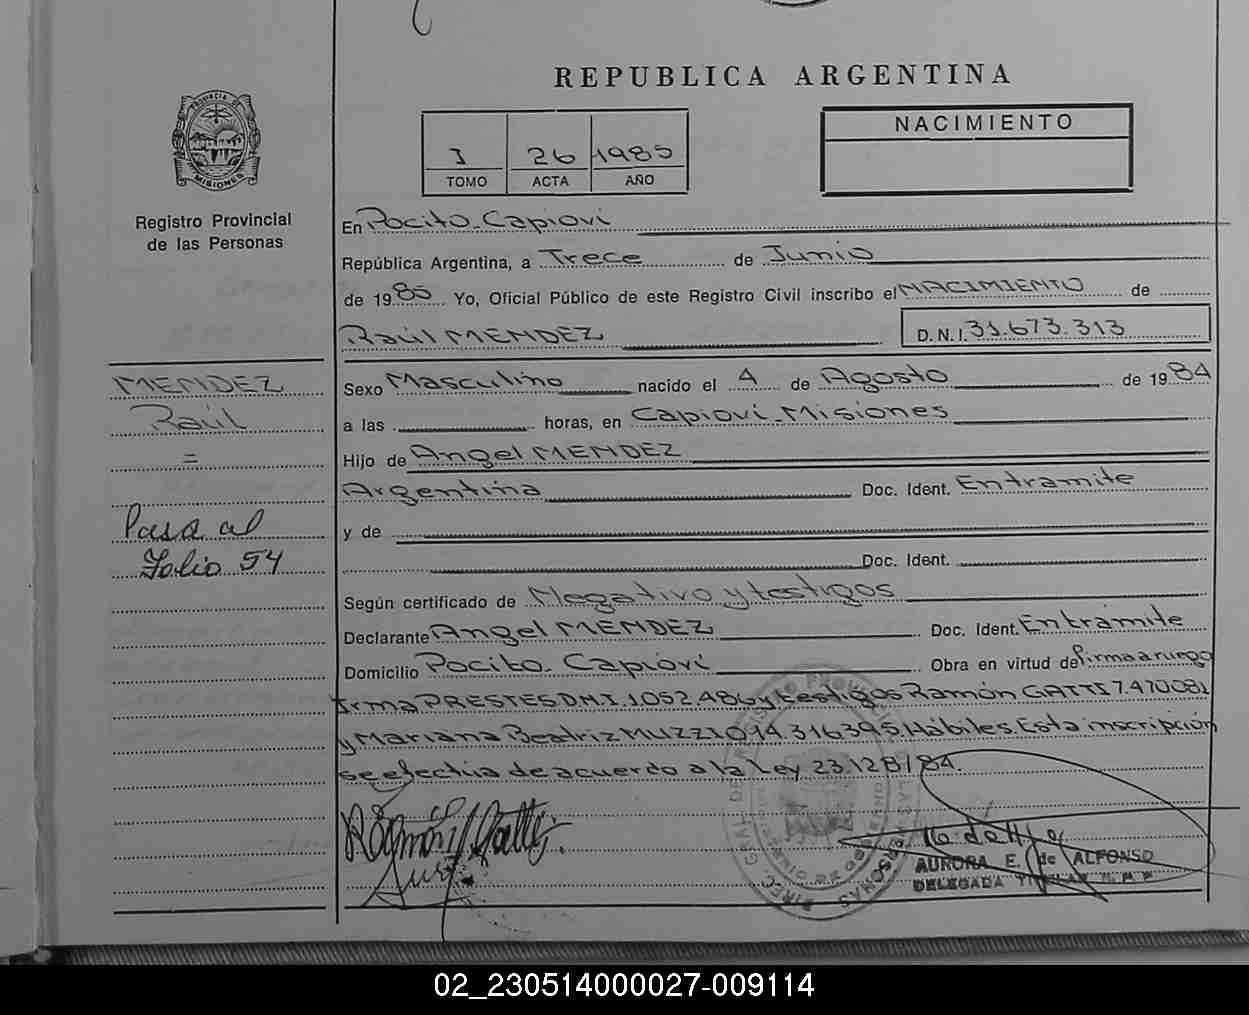 REPUBLICA ARGENTINA
PROVINCIA DE
MISIONES
Registro Provincial
de las Personas
I 26 1985
TOMO ACTA AÑO
NACIMIENTO
En Pocito-Capioví
República Argentina, a Trece de Junio
de 1985 Yo, Oficial Público de este Registro Civil inscribo el NACIMIENTO de
Raúl MENDEZ D.N.I. 31.673.313
MENDEZ
Raúl
=
Pasa al
Folio 54
Sexo Masculino nacido el 4 de Agosto de 1984
a las horas, en Capioví-Misiones
Hijo de Angel MENDEZ
Argentina Doc. Ident. Entramite
y de
Doc. Ident.
Según certificado de Negativo y testigos
Declarante Angel MENDEZ Doc. Ident. Entrámite
Domicilio Pocito-Capioví Obra en virtud de firma a ruego
Irma PRESTES D.N.I. 1.052.486 y testigos Ramón GATTI 7.470081
y Mariana Beatriz MUZZIO 14.316395. Hábiles. Esta inscripción
se efectúa de acuerdo a la Ley 23.128/84.
Ramón Gatti
AURORA E. de ALFONSO
DELEGADA TITULAR
02_230514000027-009114